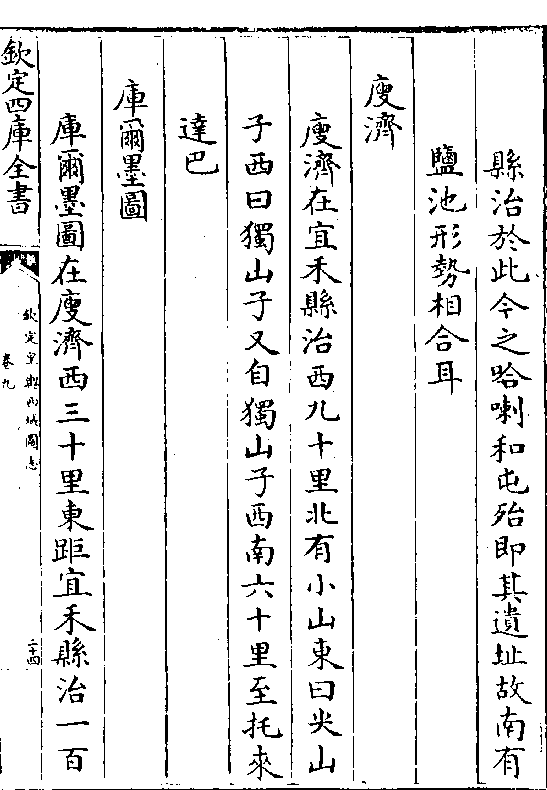 縣治於此今之哈喇和屯殆即其遺址故南有
鹽池形勢相合耳
廋濟
廋濟在宜禾縣治西九十里北有小山東曰尖山
子西曰獨山子又自獨山子西南六十里至托來
達巴
庫爾墨圖
庫爾墨圖在廋濟西三十里東距宜禾縣治一百
欽定四庫全書
欽定皇輿西域圖志
卷九
二十四